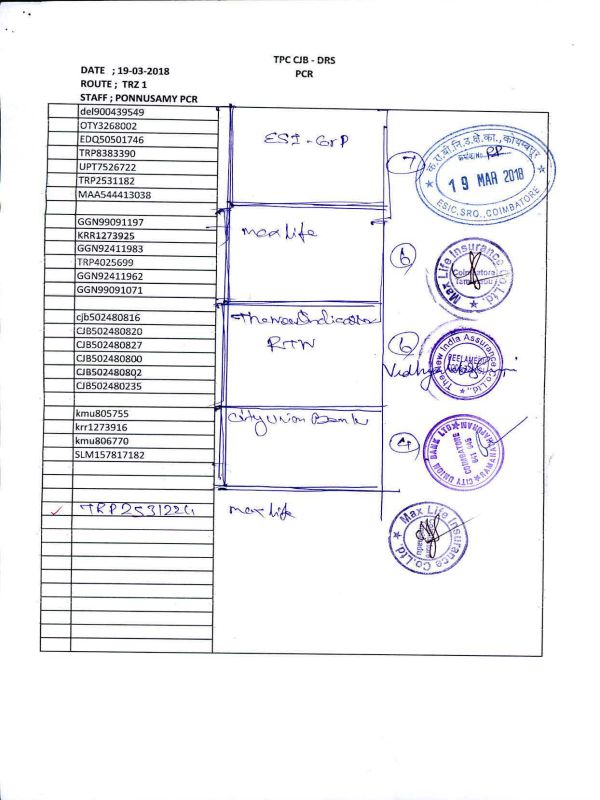 TPC CJB - DRS
PCR
DATE ; 19-03-2018
ROUTE ; TRZ 1
STAFF ; PONNUSAMY PCR
del900439549
OTY3268002
EDQ50501746
TRP8383390
UPT7526722
TRP2531182
MAA544413038
ESI-GrP
7
क.रा.बी.नि.उ.क्षे.का., कोयम्बतूर
19 MAR 2018
ESIC, SRO., COIMBATORE
GGN99091197
KRR1273925
GGN92411983
TRP4025699
GGN92411962
GGN99091071
max life
6
Max Life Insurance Co.Ltd.
Coimbatore
cjb502480816
CJB502480820
CJB502480827
CJB502480800
CJB502480802
CJB502480235
The new India
6
The New India Assurance Co.Ltd.,
PEELAMEDU
kmu805755
krr1273916
kmu806770
SLM157817182
City Union Bank
4
CITY UNION BANK LTD
COIMBATORE
641 045
TRP2531224
max life
Max Life Insurance Co.Ltd.